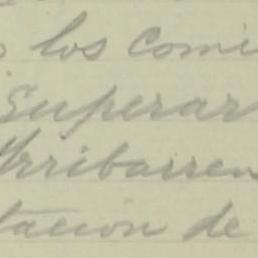 los Comi
Superar
Yrribarren
tacion de